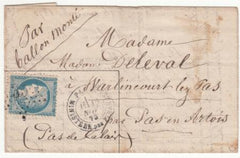 Par
ballon monté
Madame
Madame Deleval
à Warlincourt lez Pas
par Pas en Artois
(Pas de Calais)